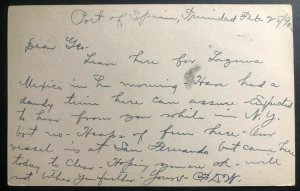 Port of Spain, Trinidad Feb 25/10
Dear Geo.
Leave here for Laguna
Mexico in the morning - Have had a
dandy time here can assure - Expected
to hear from you while in N.Y.
but no - Heaps of fun here - Our
vessel is at San Fernando but came here
today to clear - Hoping you are ok - will
not bother you further - Yours -